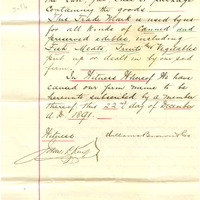 containing the goods
This Trade Mark is used by us
for all kinds of Canned and
preserved edibles, including
Fish, Meats, Fruits and Vegetables
put up or dealt in by our said
firm.
In Witness Whereof We have
caused our firm name to be
hereunto subscribed by a member
thereof this 22nd day of December
A.D. 1891.
Witness